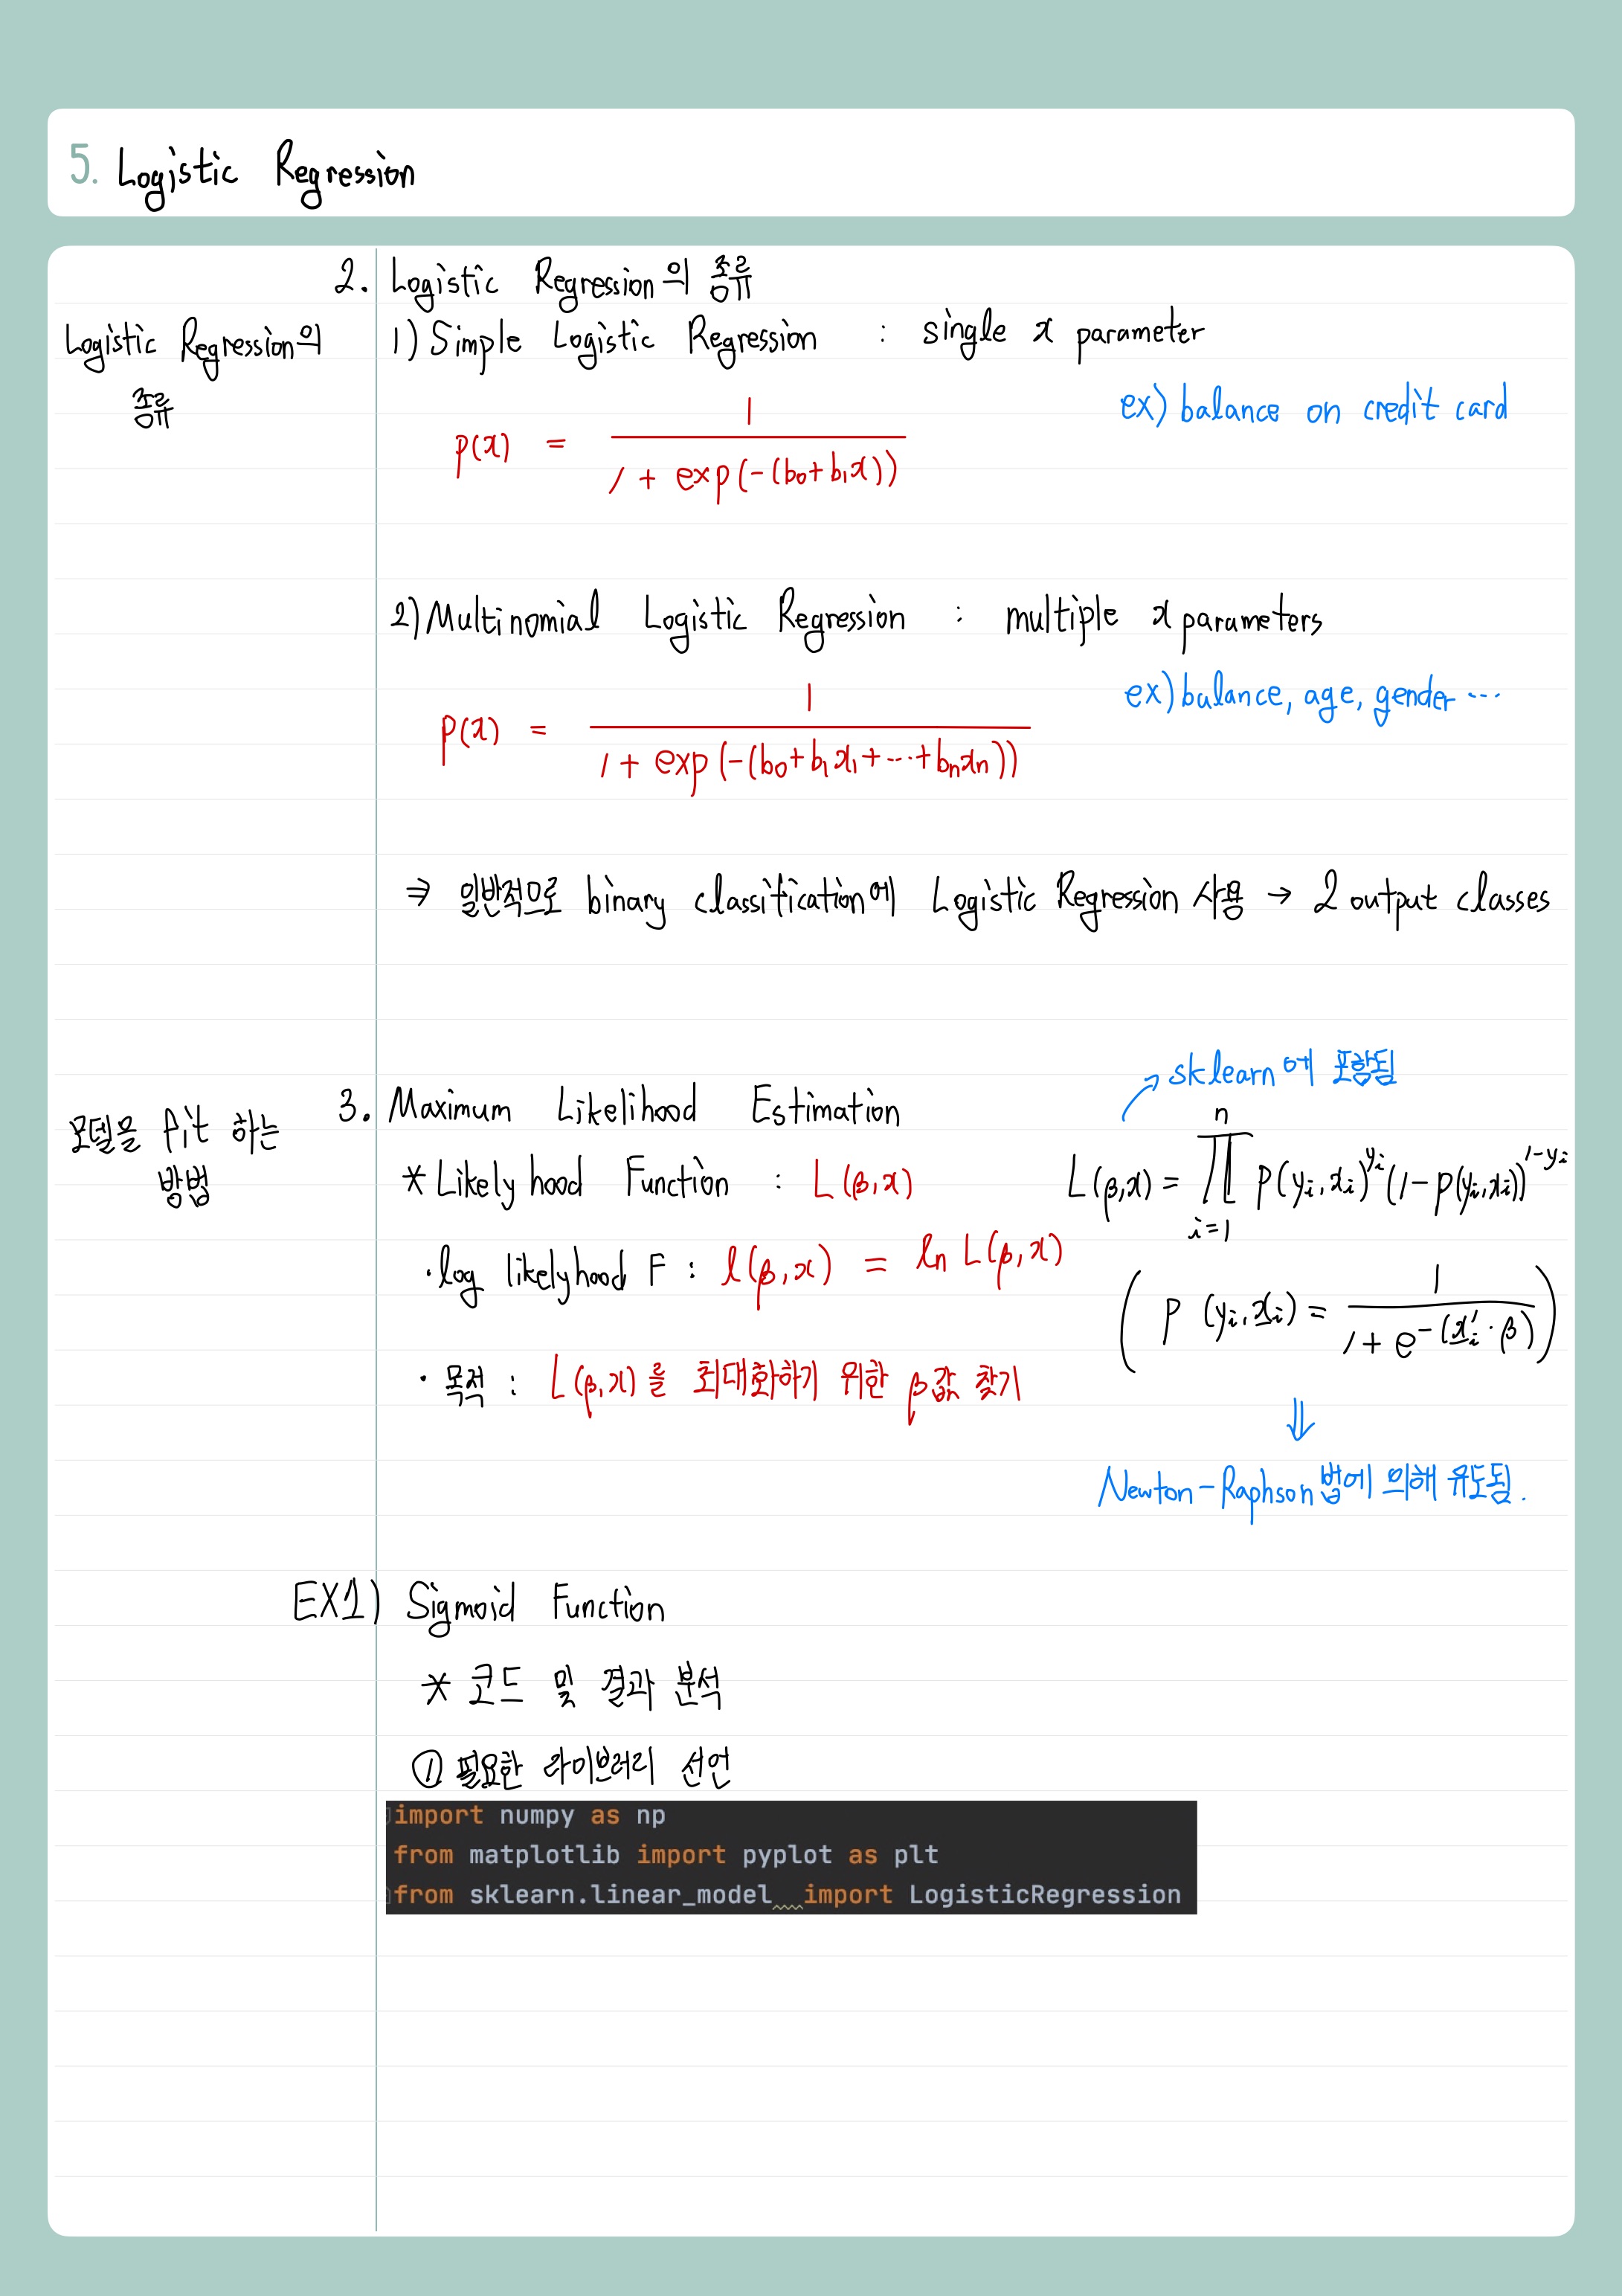 5. Logistic Regression
2. Logistic Regression의 종류
Logistic Regression의
종류
1) Simple Logistic Regression : single x parameter
ex) balance on credit card
p(x) = 1 / 1 + exp(-(b₀+b₁x))
2) Multinomial Logistic Regression : multiple x parameters
ex) balance, age, gender ...
p(x) = 1 / 1 + exp(-(b₀+b₁x₁+...+bₙxₙ))
⇒ 일반적으로 binary classification에 Logistic Regression 사용 → 2 output classes
모델을 fit 하는
방법
3. Maximum Likelihood Estimation
→ sklearn에 포함됨
* Likely hood Function : L(β,x)
L(β,x) = ∏ᵢ₌₁ⁿ p(yᵢ,xᵢ)^yᵢ (1-p(yᵢ,xᵢ))^1-yᵢ
· log likelyhood F : l(β,x) = ln L(β,x)
( p (yᵢ,xᵢ) = 1 / 1 + e^-(xᵢ'·β) )
· 목적 : L(β,x)를 최대화하기 위한 β값 찾기
⇓
Newton-Raphson법에 의해 유도됨.
EX1) Sigmoid Function
* 코드 및 결과 분석
① 필요한 라이브러리 선언
import numpy as np
from matplotlib import pyplot as plt
from sklearn.linear_model import LogisticRegression